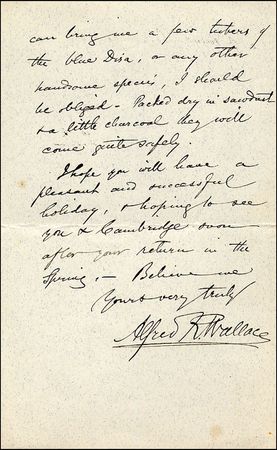 can bring me a few tubers of
the blue Disa, or any other
handsome species, I should
be obliged - Packed dry in sawdust
& a little charcoal they will
come quite safely.
I hope you will have a
pleasant and successful
holiday, & hoping to see
you & Cambridge soon
after your return in the
Spring, - Believe me
Yours very truly
Alfred R. Wallace